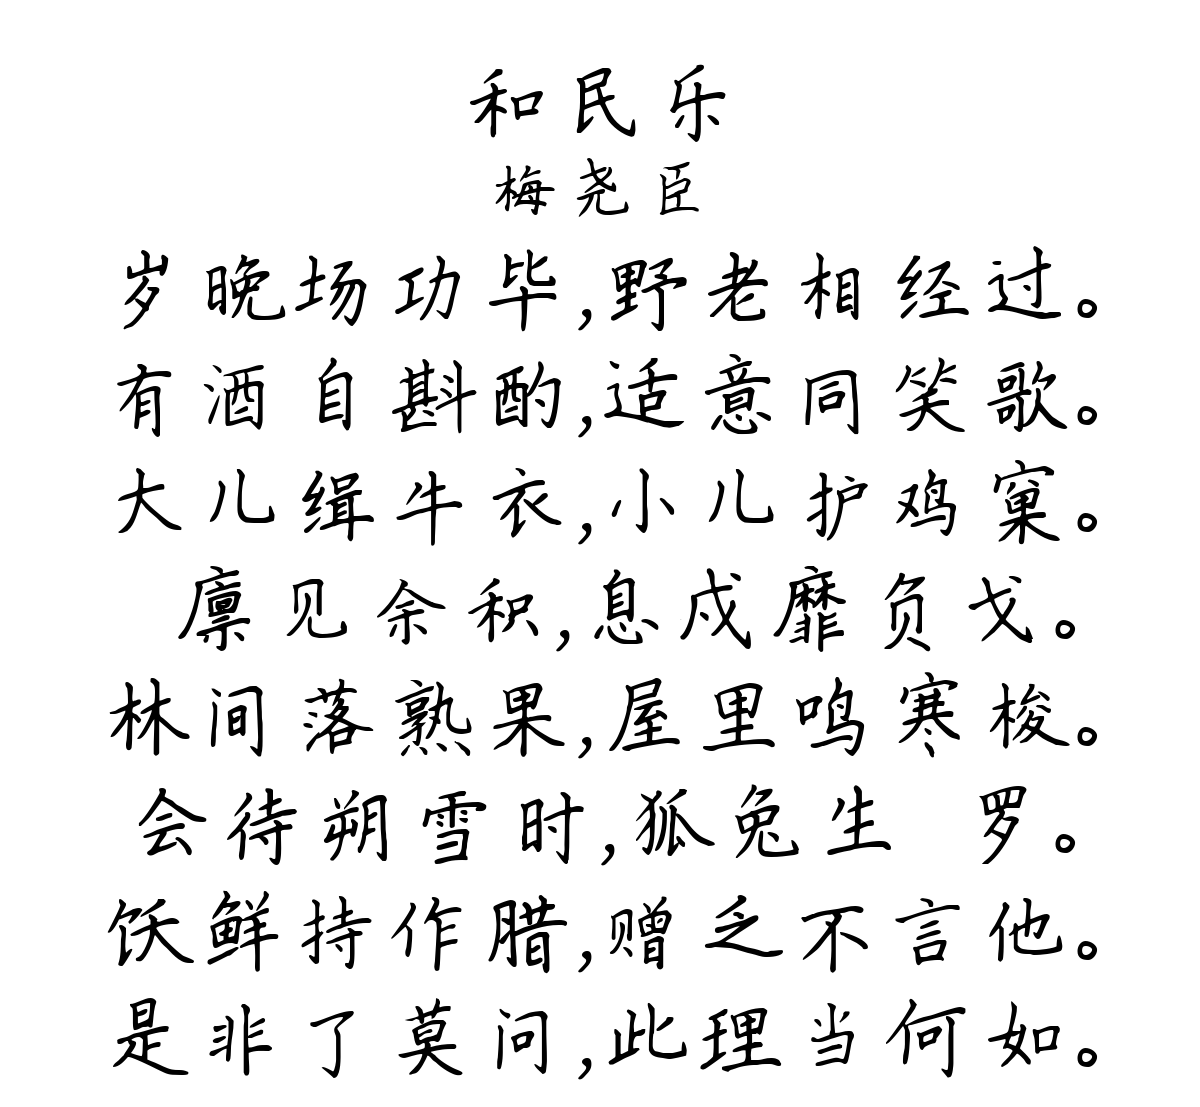 和民乐
梅尧臣
岁晚场功毕,野老相经过。
有酒自斟酌,适意同笑歌。
大儿缉牛衣,小儿护鸡窠。
廪见余积,息戍靡负戈。
林间落熟果,屋里鸣寒梭。
会待朔雪时,狐兔生 罗。
饫鲜持作腊,赠乏不言他。
是非了莫问,此理当何如。